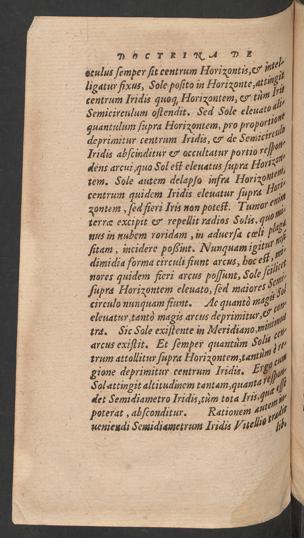 DOCTRINA DE
oculus semper sit centrum Horizontis, & intel-
ligatur fixus, Sole posito in Horizonte, attingit
centrum Iridis quoq; Horizontem, & tùm Iris
Semicirculum ostendit. Sed Sole eleuato ali-
quantulum supra Horizontem, pro proportione
deprimitur centrum Iridis, & de Semicirculo
Iridis abscinditur & occultatur portio respon-
dens arcui, quo Sol est eleuatus supra Horizon-
tem. Sole autem delapso infra Horizontem,
centrum quidem Iridis eleuatur supra Hori-
zontem, sed fieri Iris non potest. Tumor enim
terræ excipit & repellit radios Solis, quo mi-
nus in nubem roridam, in aduersa cœli plaga
sitam, incidere poßint. Nunquam igitur
dimidia forma circuli fiunt arcus, hoc est, mi-
nores quidem fieri arcus possunt, Sole scilicet
supra Horizontem eleuato, sed maiores Semi-
circulo nunquam fiunt. Ac quantò magis Sol
eleuatur, tantò magis arcus deprimitur, & con-
tra. Sic Sole existente in Meridiano, minimus
arcus existit. Et semper quantùm Solis cen-
trum attollitur supra Horizontem, tantùm è re-
gione deprimitur centrum Iridis. Ergo cum
Sol attingit altitudinem tantam, quanta respon-
det Semidiametro Iridis, tùm tota Iris, quæ esse
poterat, absconditur. Rationem autem in-
ueniendi Semidiametrum Iridis Vitellio tradit
lib.